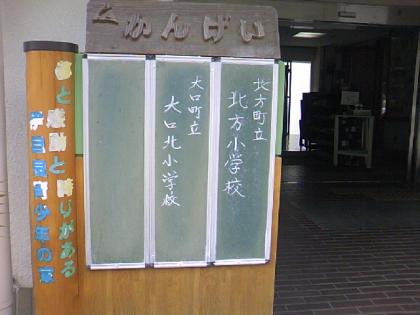 かんげい
北方町立
北方小学校
大口町立
大口北小学校
と感動と語りがある
少年の家